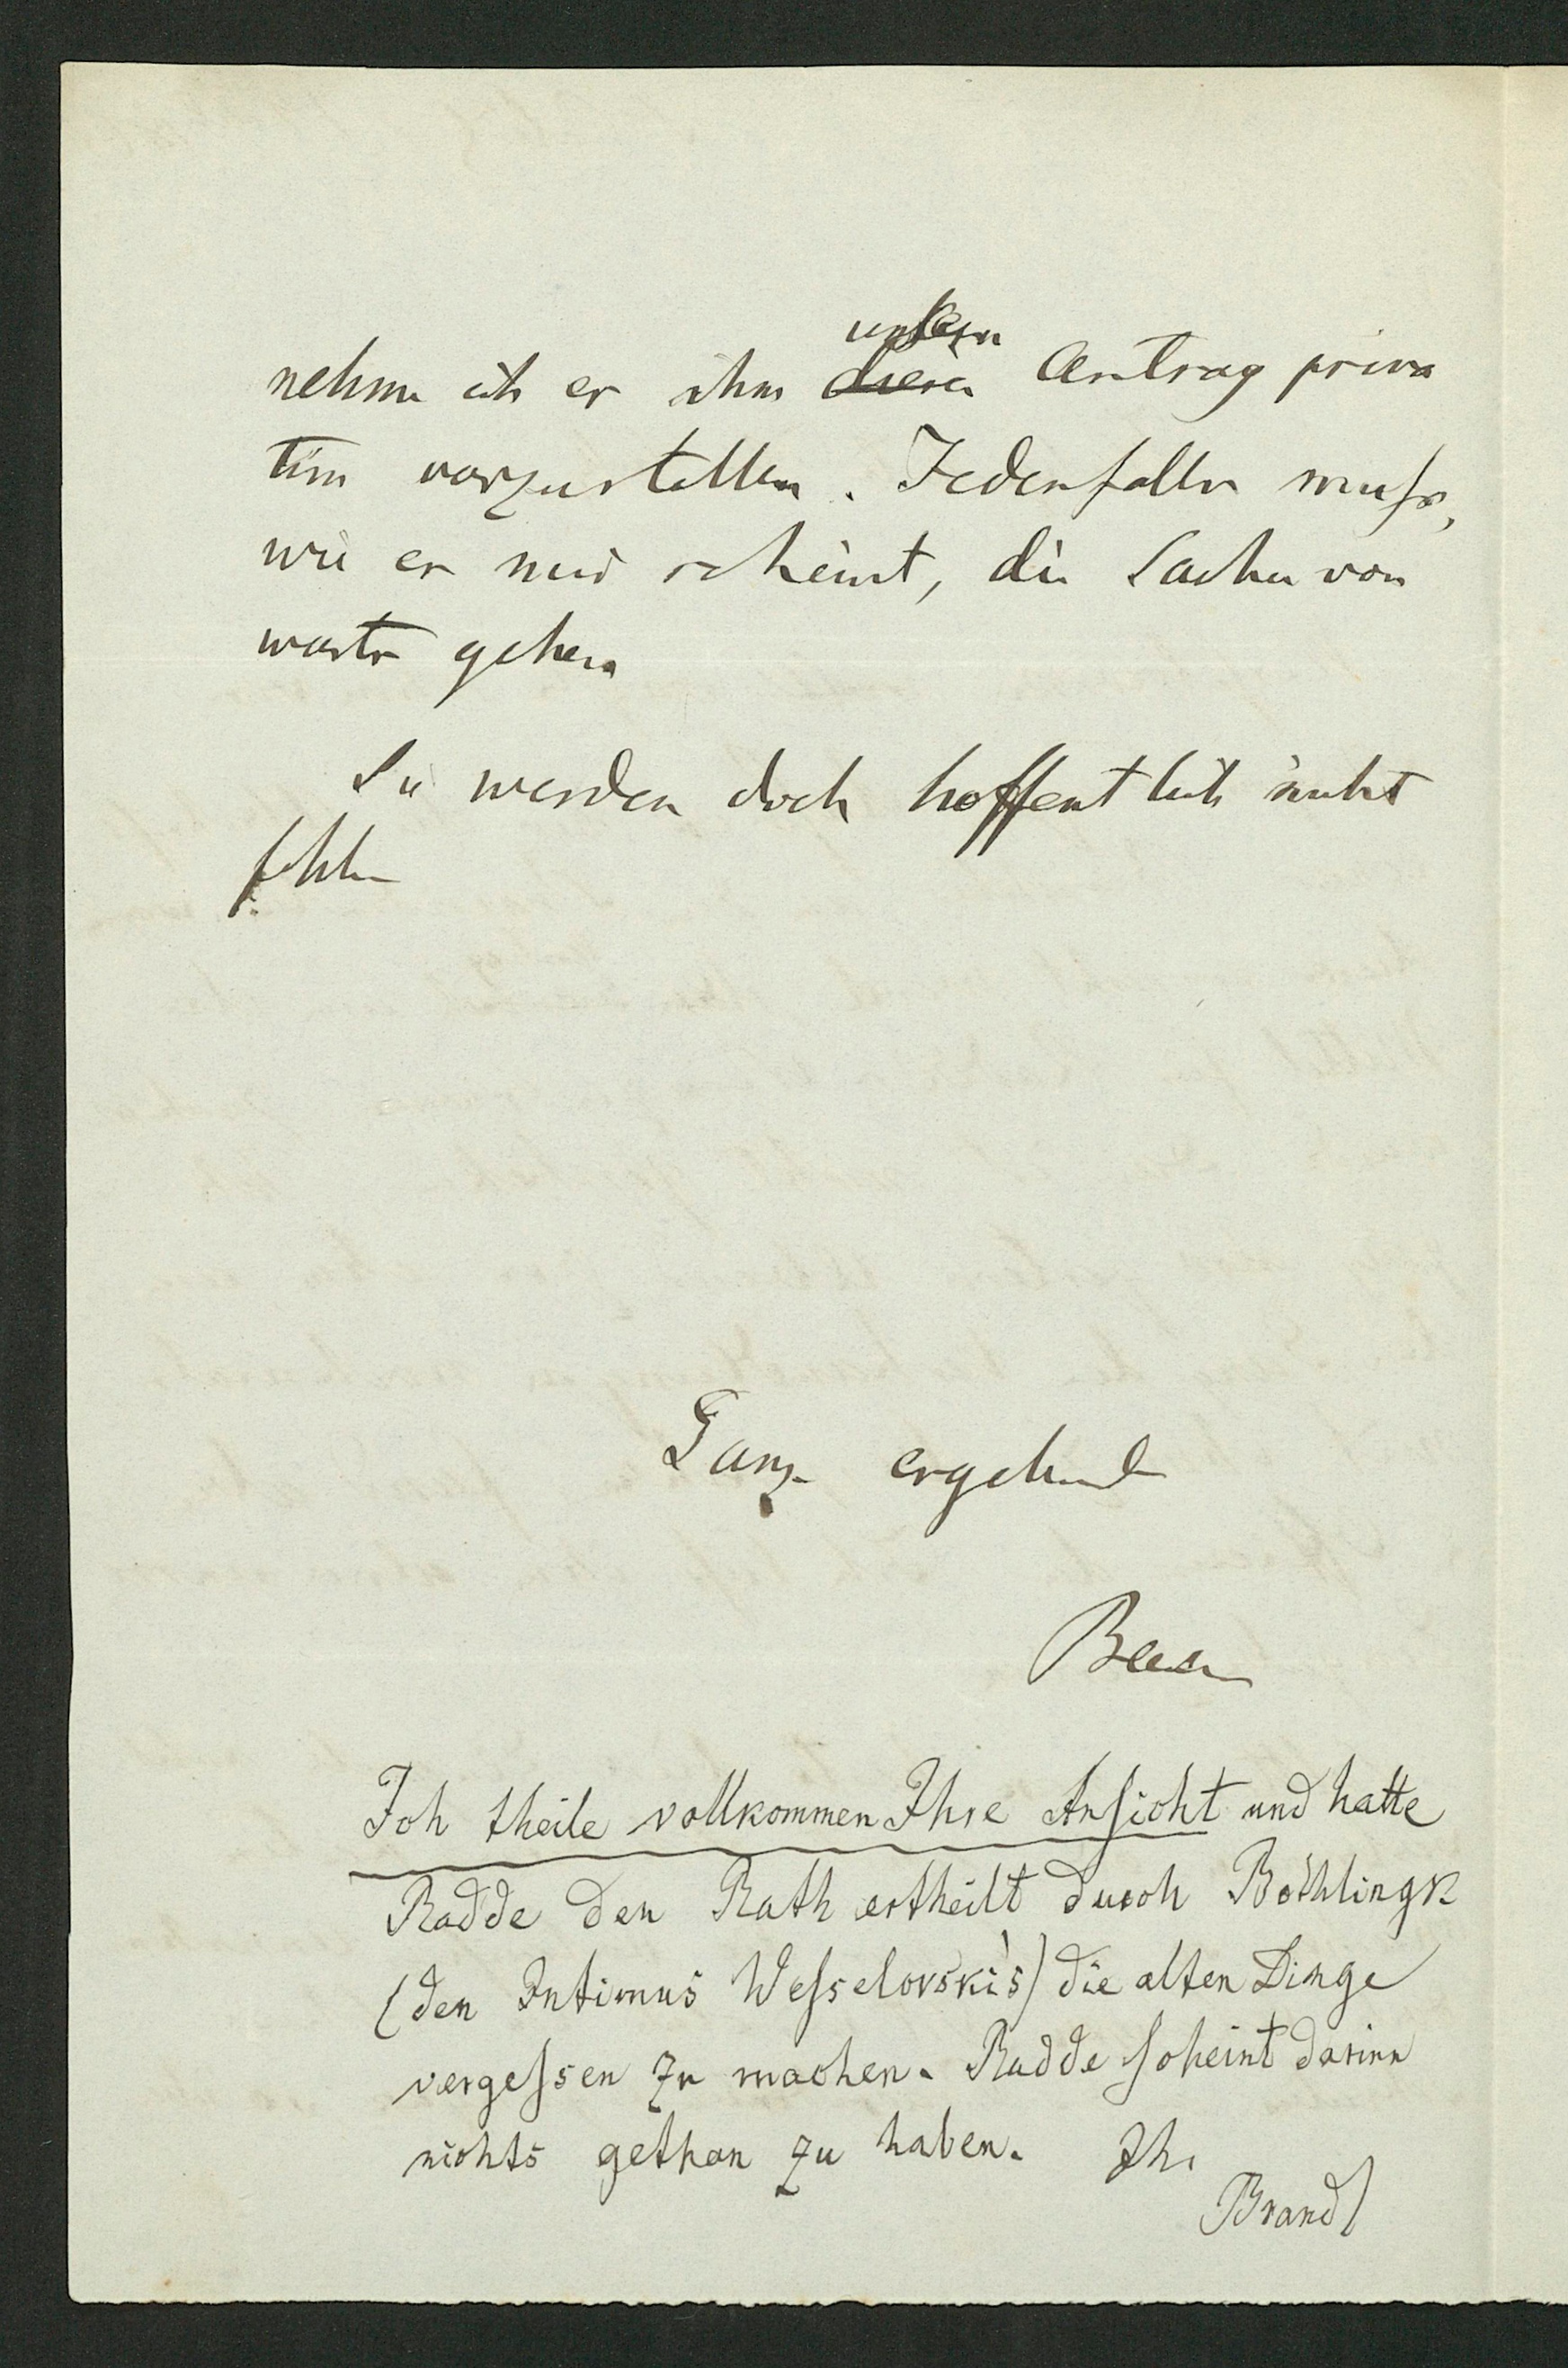 unsern
nehme ich es ihm diesen Antrag priva
tim vorzustellen. Jedenfalls muſs,
wie es mir scheint, die Sache vor
warts gehen
Sie werden doch hoffentlich nicht
fehlen
Ganz ergebenst
Baer
Ich theile vollkommen Ihre Anſicht und hatte
Radde den Rath ertheilt durch Böthlingk
(den Intimus Weſselovski's) die alten Dinge
vergeſsen zu machen. Radde ſcheint darinn
nichts gethan zu haben. Ihr
Brandt